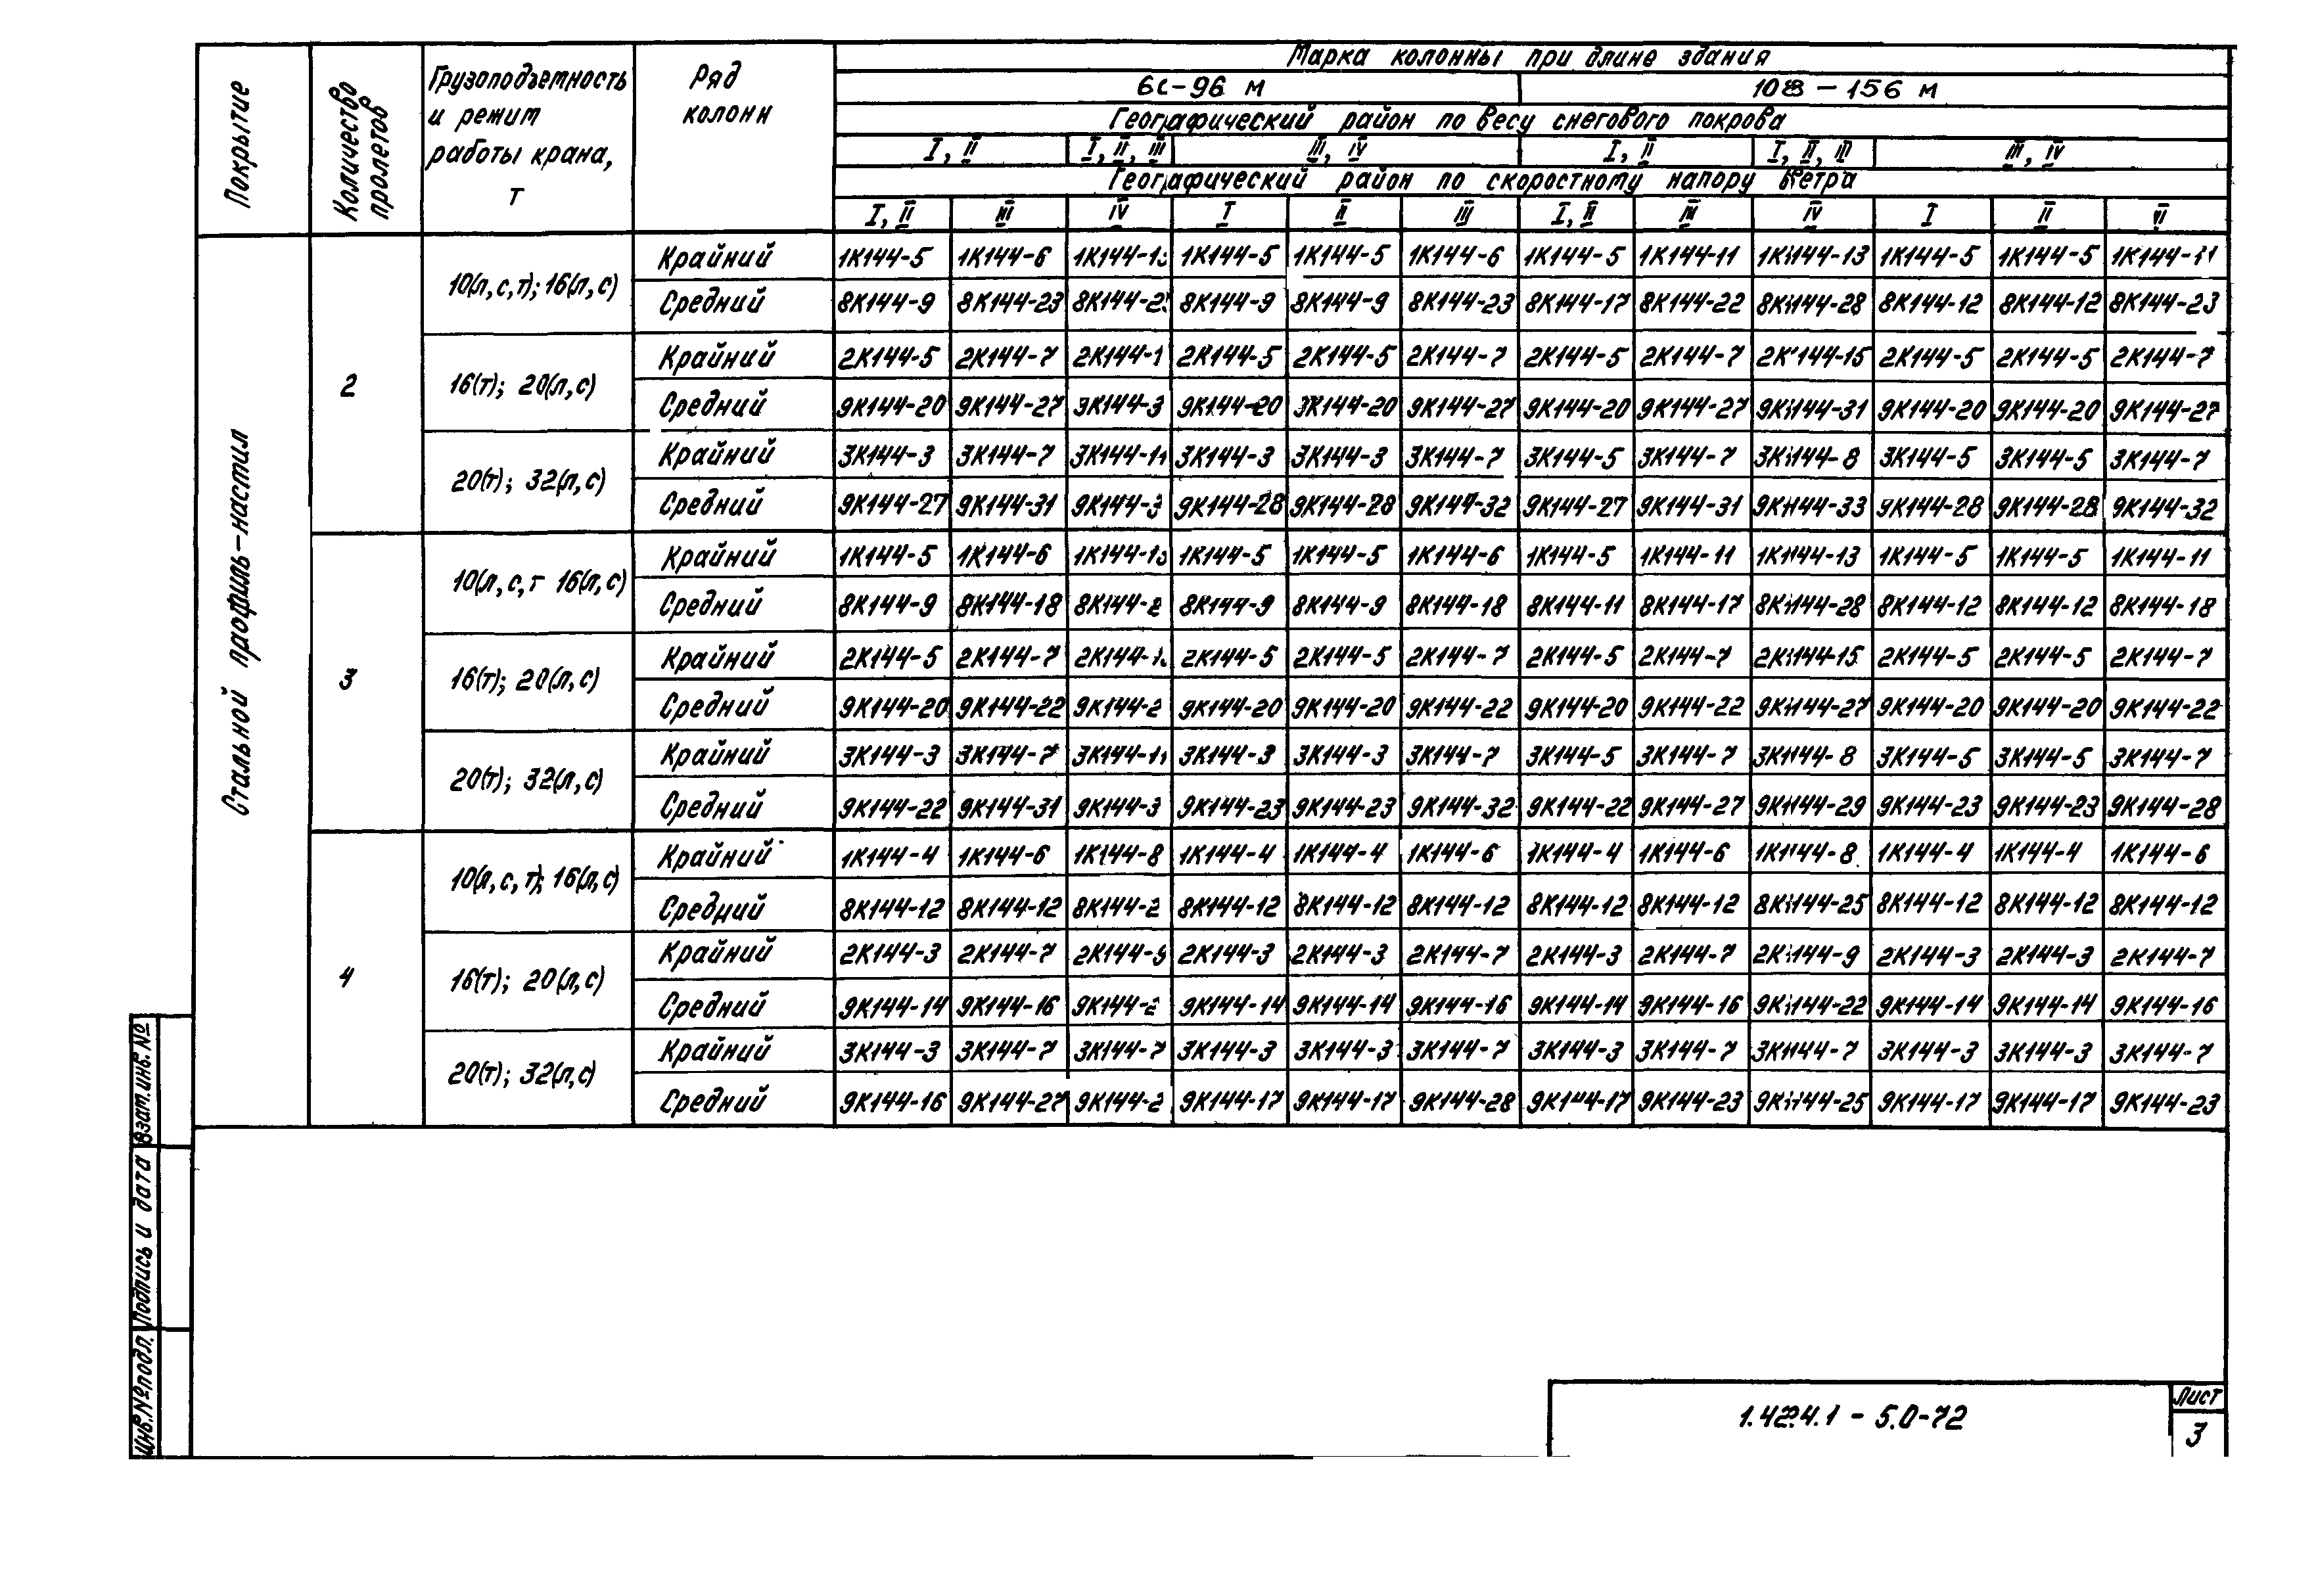 Покрытие
Количество пролетов
Грузоподъемность и режим работы крана, т
Ряд колонн
Марка колонны при длине здания
-96 м 108 – 156 м
Географический район по весу снегового покрова
I, II I, II, III III, IV I, II I, II, III III, IV
Географический район по скоростному напору ветра
I, II III IV I II III I, II III IV I II
Стальной профиль-настил
2
10(л,с,т); 16(л,с)
Крайний 1К144-5 1К144-6 1К144-5 1К144-5 1К144-6 1К144-5 1К144-11 1К144-13 1К144-5 1К144-5 1К144-11
Средний 8К144-9 8К144-23 8К144-9 8К144-9 8К144-23 8К144-17 8К144-22 8К144-28 8К144-12 8К144-12 8К144-23
16(т); 20(л,с)
Крайний 2К144-5 2К144-7 2К144-1 2К144-5 2К144-5 2К144-7 2К144-5 2К144-7 2К144-15 2К144-5 2К144-5 2К144-7
Средний 9К144-20 9К144-27 9К144-3 9К144-20 9К144-20 9К144-27 9К144-20 9К144-27 9К144-31 9К144-20 9К144-20 9К144-27
20(т); 32(л,с)
Крайний 3К144-3 3К144-7 3К144-11 3К144-3 3К144-3 3К144-7 3К144-5 3К144-7 3К144-8 3К144-5 3К144-5 3К144-7
Средний 9К144-27 9К144-31 9К144-3 9К144-28 9К144-28 9К144-32 9К144-27 9К144-31 9К144-33 9К144-28 9К144-28 9К144-32
3
10(л,с,т 16(л,с)
Крайний 1К144-5 1К144-6 1К144-13 1К144-5 1К144-5 1К144-6 1К144-5 1К144-11 1К144-13 1К144-5 1К144-5 1К144-11
Средний 8К144-9 8К144-18 8К144-2 8К144-9 8К144-9 8К144-18 8К144-11 8К144-17 8К144-28 8К144-12 8К144-12 8К144-18
16(т); 20(л,с)
Крайний 2К144-5 2К144-7 2К144-1 2К144-5 2К144-5 2К144-7 2К144-5 2К144-7 2К144-15 2К144-5 2К144-5 2К144-7
Средний 9К144-20 9К144-22 9К144-2 9К144-20 9К144-20 9К144-22 9К144-20 9К144-22 9К144-27 9К144-20 9К144-20 9К144-22
20(т); 32(л,с)
Крайний 3К144-3 3К144-7 3К144-11 3К144-3 3К144-3 3К144-7 3К144-5 3К144-7 3К144-8 3К144-5 3К144-5 3К144-7
Средний 9К144-22 9К144-31 9К144-3 9К144-23 9К144-23 9К144-32 9К144-22 9К144-27 9К144-29 9К144-23 9К144-23 9К144-28
4
10(л,с,т); 16(л,с)
Крайний 1К144-4 1К144-6 1К144-8 1К144-4 1К144-4 1К144-6 1К144-4 1К144-6 1К144-8 1К144-4 1К144-4 1К144-6
Средний 8К144-12 8К144-12 8К144-2 8К144-12 8К144-12 8К144-12 8К144-12 8К144-12 8К144-25 8К144-12 8К144-12 8К144-12
16(т); 20(л,с)
Крайний 2К144-3 2К144-7 2К144-9 2К144-3 2К144-3 2К144-7 2К144-3 2К144-7 2К144-9 2К144-3 2К144-3 2К144-7
Средний 9К144-14 9К144-16 9К144-2 9К144-14 9К144-14 9К144-16 9К144-14 9К144-16 9К144-22 9К144-14 9К144-14 9К144-16
20(т); 32(л,с)
Крайний 3К144-3 3К144-7 3К144-7 3К144-3 3К144-3 3К144-7 3К144-3 3К144-7 3К144-7 3К144-3 3К144-3 3К144-7
Средний 9К144-16 9К144-27 9К144-2 9К144-17 9К144-17 9К144-28 9К144-17 9К144-23 9К144-25 9К144-17 9К144-17 9К144-23
Взам.инв.№
Подпись и дата
Инв.№подл.
1.424.1 – 5.0-72
Лист
3